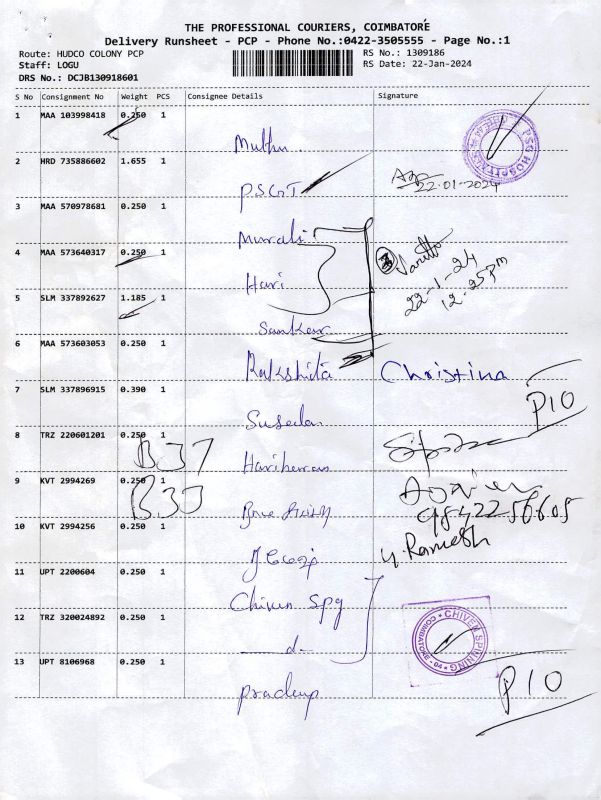 THE PROFESSIONAL COURIERS, COIMBATORE
Delivery Runsheet - PCP - Phone No.:0422-3505555 - Page No.:1
Route: HUDCO COLONY PCP
RS No.: 1309186
Staff: LOGU
RS Date: 22-Jan-2024
DRS No.: DCJB130918601
S No Consignment No Weight PCS Consignee Details Signature
1 MAA 103998418 0.250 1
Muthu
PSG HOSPITALS
2 HRD 735886602 1.655 1
PSGIT
22.01-2024
3 MAA 570978681 0.250 1
Murali
4 MAA 573640317 0.250 1
Hari
22-1-24
12.25pm
5 SLM 337892627 1.185 1
Sankar
6 MAA 573603053 0.250 1
Rakshida Christina
7 SLM 337896915 0.390 1
P10
8 TRZ 220601201 0.250 1
B37
Hariharan
9 KVT 2994269 0.250 1
B30
9842256605
10 KVT 2994256 0.250 1
y. Ramesh
11 UPT 2200604 0.250 1
Chiven Spg
12 TRZ 320024892 0.250 1
-d-
CHIVEN SPINNING
COIMBATORE - 04
13 UPT 8106968 0.250 1
Pradeep
P10